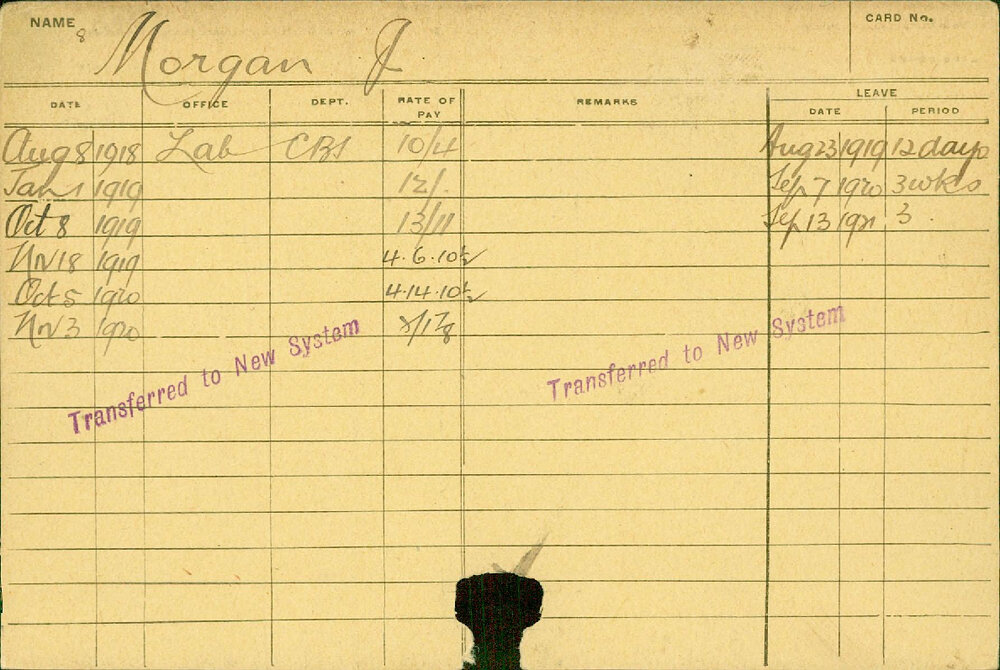 NAME 8 Morgan J CARD No.
DATE OFFICE DEPT. RATE OF PAY REMARKS LEAVE DATE PERIOD
Aug 8 1918 Lab CBS 10/4 Aug 23 1919 12 days
Jan 1 1919 12/- Sep 7 1920 3 wks
Oct 8 1919 13/11 Sep 13 1921 3 .
Nov 18 1919 4.6.10½
Oct 5 1920 4.14.10½
Nov 3 1920
Transferred to New System
Transferred to New System